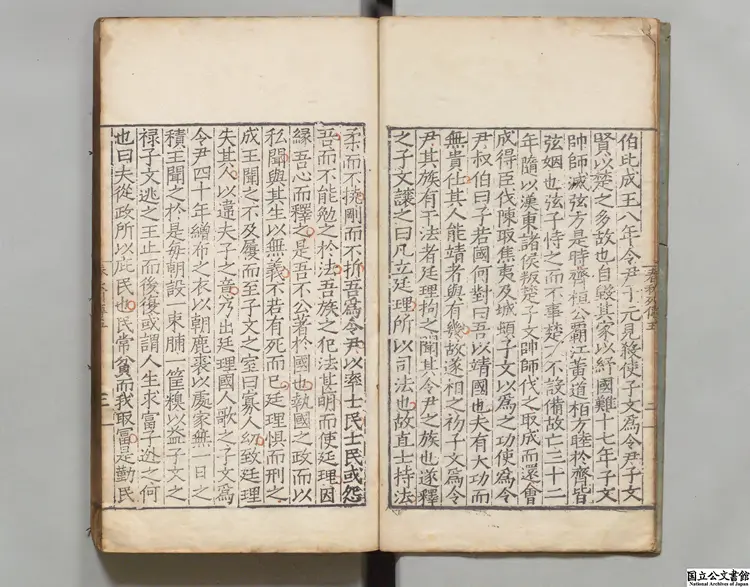 伯比成王八年令尹子元見殺使子文為令尹子文
賢以楚之多故也自毀其家以紓國難十七年子文
帥師滅弦方是時齊桓公霸江黃道相方睦於齊皆
弦姻也弦子恃之而不事楚又不設備故亡三十二
年隨以漢東諸侯叛楚子文帥師代之取成而還會
成得臣伐陳取焦夷及城頓子文以為之功使為令
尹叔伯曰子若國何對曰吾以靖國也夫有大功而
無貴仕其人能靖者與有幾故遂相之初子文為令
尹其族有干法者廷理拘之聞其令尹之族也遂釋
之子文讓之曰凡立廷理所以司法也故直士持法
柔而不撓剛而不折吾為令尹以率士民士民或怨
吾而不能勉之於法吾族之犯法甚明而使廷理因
緣吾心而釋之是吾不公著於國也執國之政而以
私聞與其生以無義不若有死而已廷理懼而刑之
成王聞之不及屨而至子文之室曰寡人幼致廷理
失其人以違夫子之意乃出廷理國人歌之子文為
令尹四十年緇布之衣以朝鹿裘以處家無一日之
積王聞之於是每朝設一束脯一筐糗以羞子文之
祿子文逃之王止而後復或謂人生求富子逃之何
也曰夫從政所以庇民也民常貧而我取富是勤民
國立公文書館
National Archives of Japan